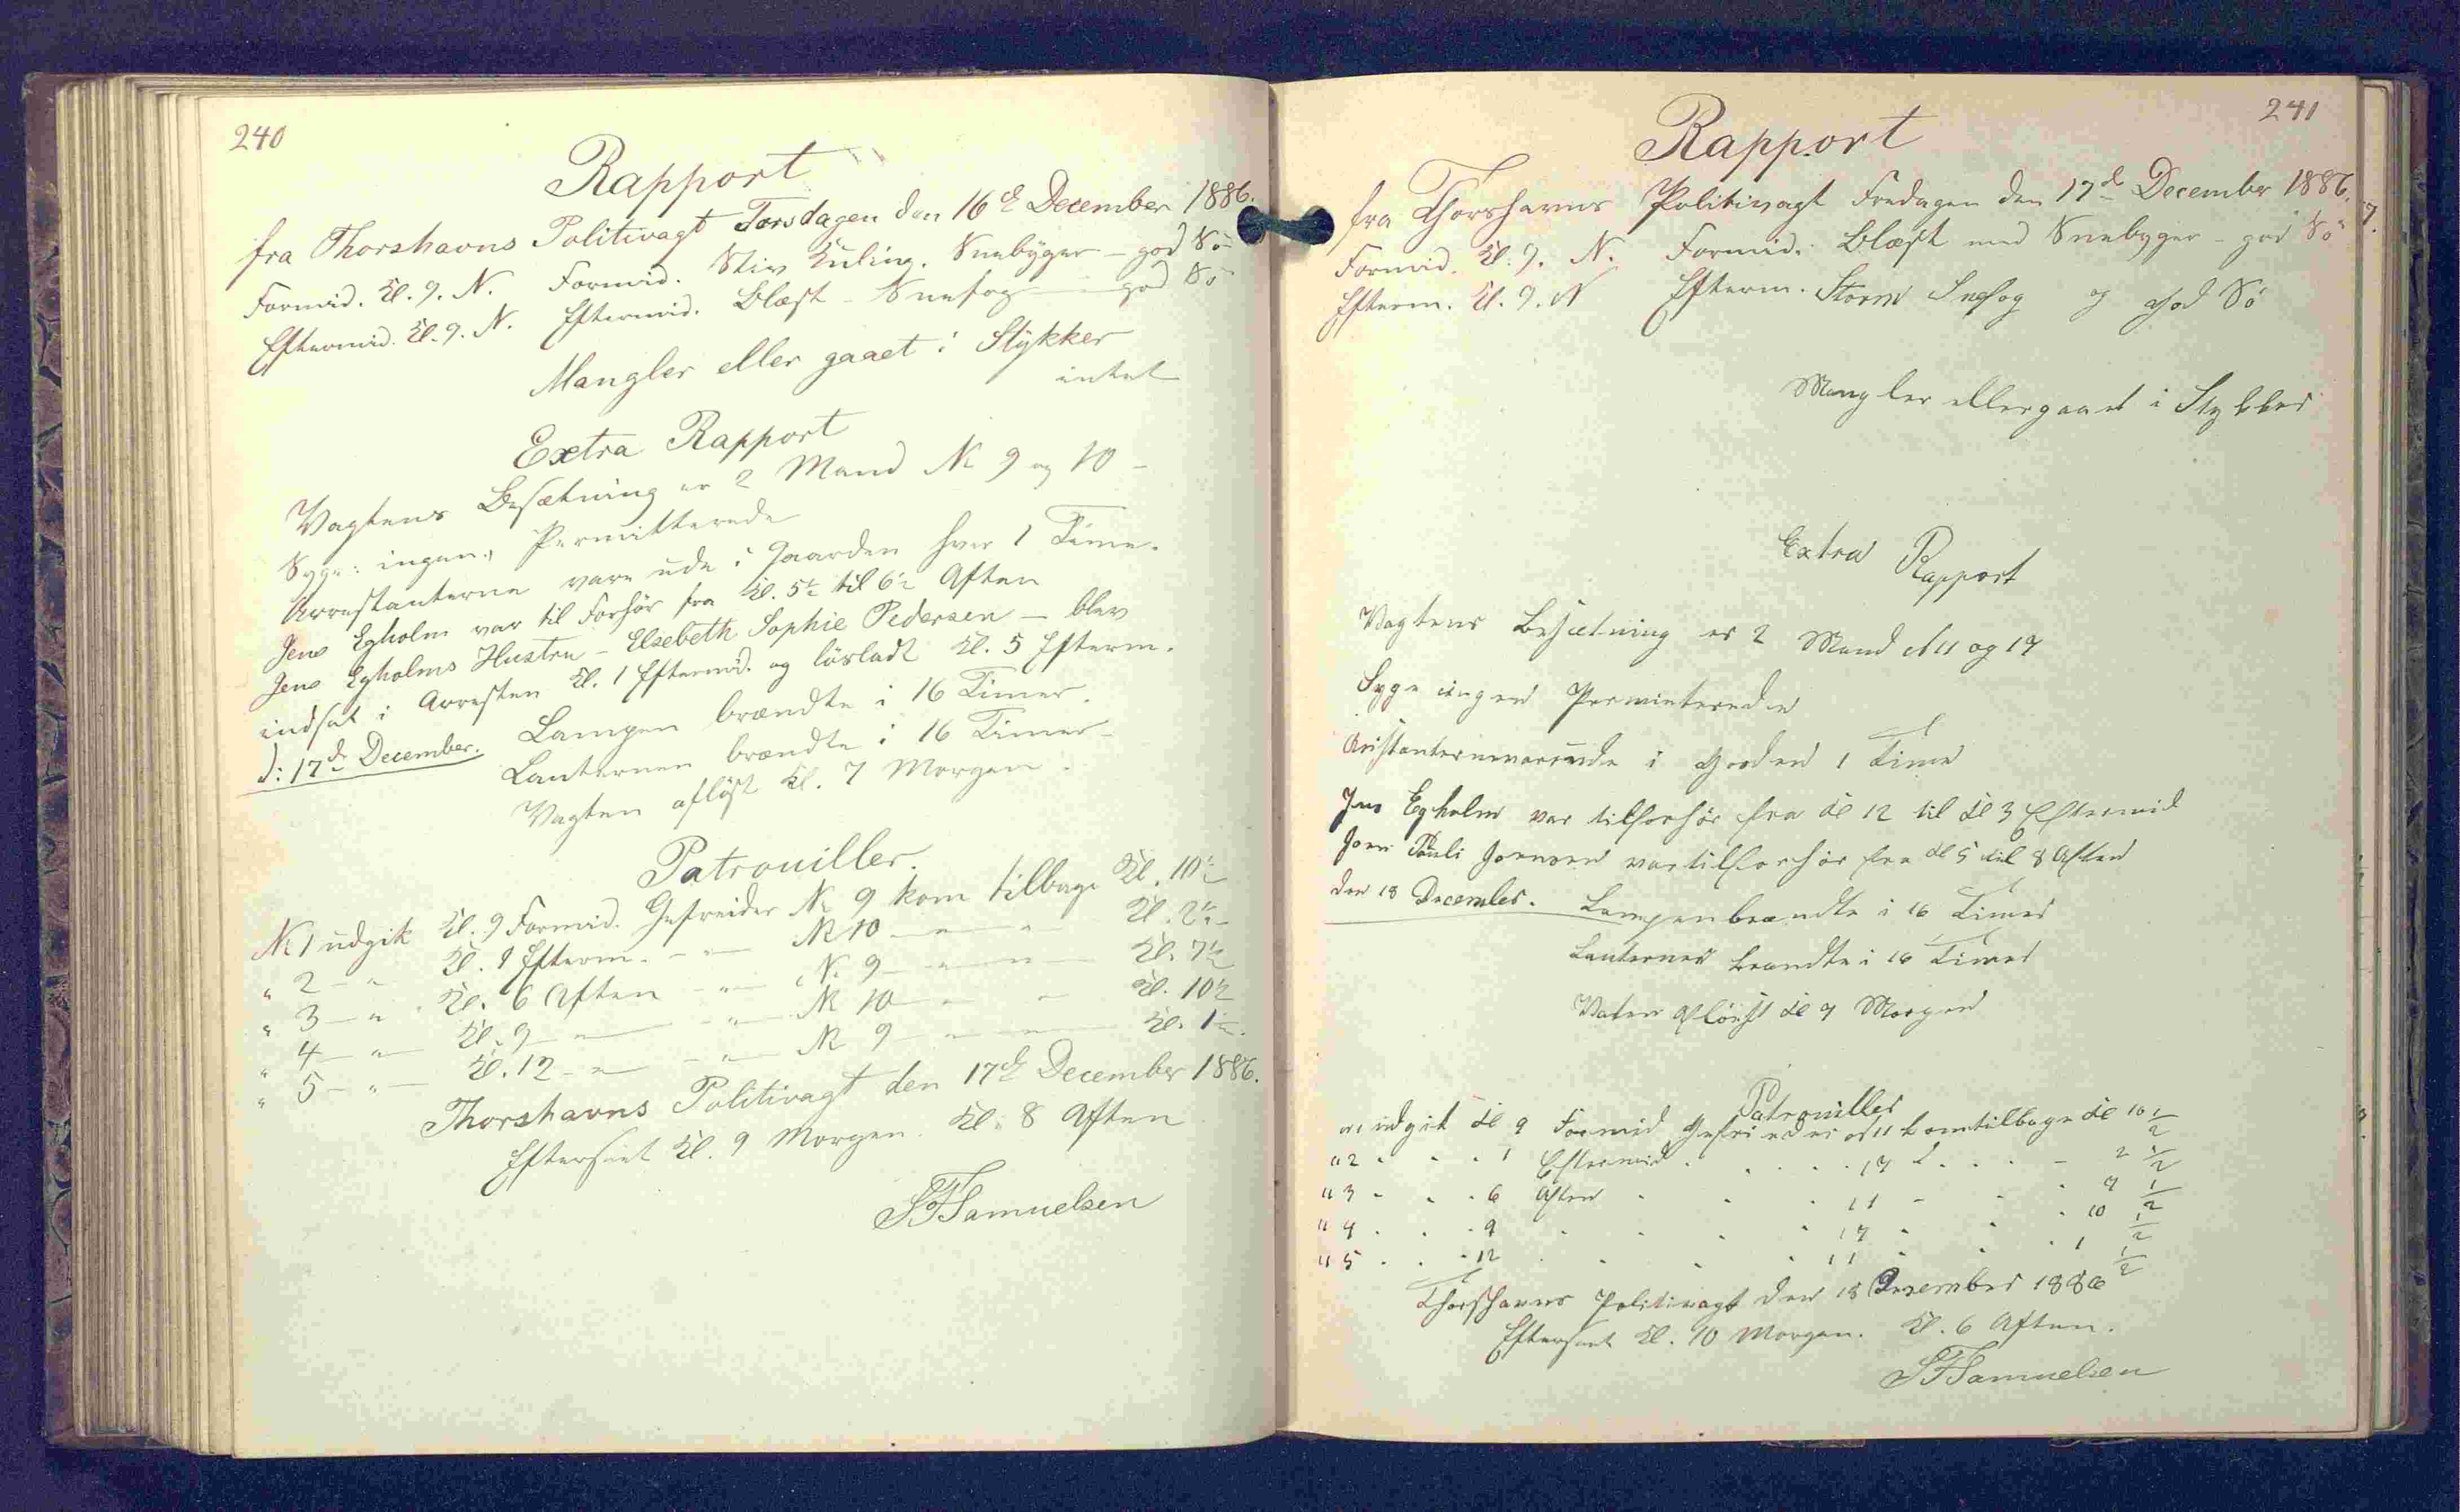 240
Rapport
fra Thorshavns Politivagt Torsdagen den 16d December 1886.
Formid. Kl. 9. N. Formid. Stiv Kuling. Snebyger – god Sö
Eftermid. Kl. 9. N. Eftermid. Blæst – Snefog – god Sö
Mangler eller gaaet i Stykker
intet
Extra Rapport
Vagtens Besætning er 2 Mand N 9 og 10 –
Syge: ingen, Permitterede
Arrestanterne vare ude i Gaarden hver 1 Time.
Jens Egholm var til Forhör fra Kl. 5½ til 6½ Aften
Jens Egholms Hustru – Elsebeth Sophie Pedersen – blev
indsat i Arresten Kl. 1 Eftermid. og lösladt Kl. 5 Efterm.
d: 17d December. Lampen brændte i 16 Timer.
Lanternen brændte i 16 Timer –
Vagten aflöst Kl. 7 Morgen.
Patrouiller.
N 1 udgik Kl. 9 Formid. Gefreider N 9 kom tilbage Kl. 10½
" 2 – " Kl. 1 Efterm. – " – N 10 – " – " Kl. 2½ –
" 3 – " Kl. 6 Aften – " – N. 9 – " – " – Kl. 7½
" 4 – " – Kl. 9 – " – – " – N 10 – " – " Kl. 10½
" 5 – " – Kl. 12 – " – – " – N 9 – " – " – Kl. 1½.
Thorshavns Politivagt den 17d December 1886.
Efterseet Kl. 9 Morgen. Kl. 8 Aften
SFSamuelsen
241
Rapport
fra Thorshavns Politivagt Fredagen den 17d December 1886.
Formid. Kl. 9. N. Formid. Blæst med Snebyger – god Sö
Efterm. Kl. 9. N Efterm. Storm Snefog og god Sö
Mangler eller gaaet i Stykker
Extra Rapport
Vagtens Besætning er 2 Mand N 11 og 17
Syge ingen Perminterede
i Gorden 1 Time
Jens Egholm var tilforhör fra Kl 12 til Kl 3 Eftermid
Joen Pauli Joensen var tilforhör fra Kl 5 til 8 Aften
den 18 December. Lampen brændte i 16 Timer
Lanternen brændte i 16 Timer
Vaten aflöist Kl 7 Morgen
Patrouiller
N1 udgik Kl 9 Formid Gefrieder N 11 kom tilbage Kl 10 ½
" 2 - - - 1 Eftermid - - - - 17 - - - - 2 ½
" 3 - - - 6 Aften - - - 11 - - - 7 ½
" 4 - - - 9 - - - - 17 - - - 10 ½
" 5 - - - 12 - - - - 11 - - - 1 ½
Thorshavns Politivagt den 18 December 1886
Efterseet Kl. 10 Morgen. Kl. 6 Aften.
SFSamuelsen
7.